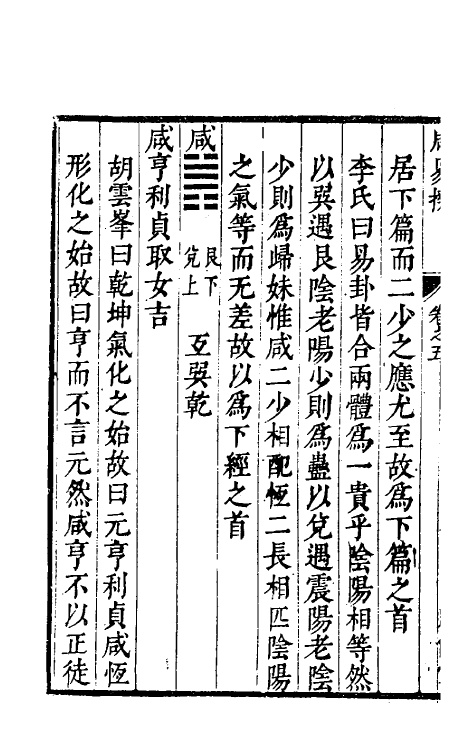 卷之五
居下篇而二少之應尤至故爲下篇之首
李氏曰易卦皆合兩體爲一貴乎陰陽相等然
以巽遇艮陰老陽少則爲蠱以兌遇震陽老陰
少則爲歸妹惟咸二少相配恆二長相匹陰陽
之氣等而无差故以爲下經之首
咸 艮下 兌上 互巽乾
咸亨利貞取女吉
胡雲峯曰乾坤氣化之始故曰元亨利貞咸恆
形化之始故曰亨而不言元然咸亨不以正徒